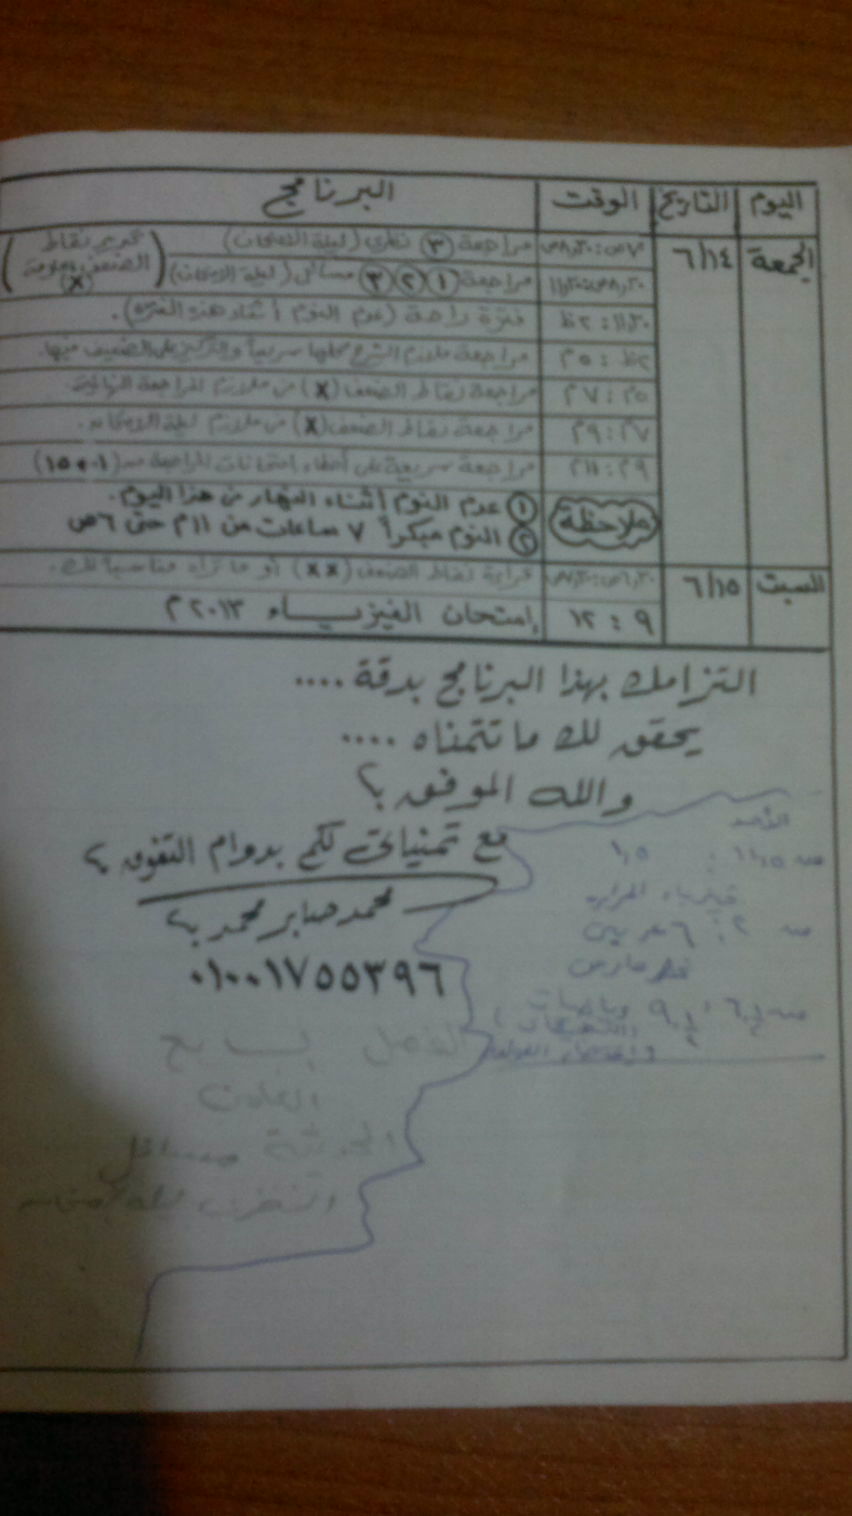 اليوم التاريخ الوقت البرنامج
الجمعة ٦/١٤ ٧ص:٨,٣٠ص مراجعة ③ نظرى (ليلة الامتحان) (تحديد نقاط الضعف بعلامة (X))
٨,٣٠ص:١١,٣٠ مراجعة ① ② ③ مسائل (ليلة الامتحان)
١١,٣٠:٢ظ فترة راحة (عدم النوم أثناء هذه الفترة).
٢ظ:٥م مراجعة ملازم الشرح كلها سريعاً والتركيز على الضعيف فيها.
٥م:٧م مراجعة نقاط الضعف (X) من ملازم المراجعة النهائية
٧م:٩م مراجعة نقاط الضعف (X) من ملازم ليلة الامتحان.
٩م:١١م مراجعة سريعة على أخطاء امتحانات المراجعة من (١ → ١٥)
ملاحظة ① عدم النوم أثناء النهار من هذا اليوم.
② النوم مبكراً ٧ ساعات من ١١م حتى ٦ص
السبت ٦/١٥ ٦ص:٧,٣٠ص قراءة نقاط الضعف (XX) أو ما تراه مناسباً لك.
٩:١٢ إمتحان الفيزياء ٢٠١٣م
التزامك بهذا البرنامج بدقة ....
يحقق لك ما تتمناه ....
والله الموفق ؟
مع تمنياتى لكم بدوام التفوق ؟
محمد صابر محمد ؟
٠١٠٠١٧٥٥٣٩٦
من ١١,١٥ : ١,٥
فيزياء
من ٢ : ٦ عربى
من ٦ ١/٢ : ٩ ١/٢ رياضيات
الفصل السابع
الحديثة مسائل
ليلة